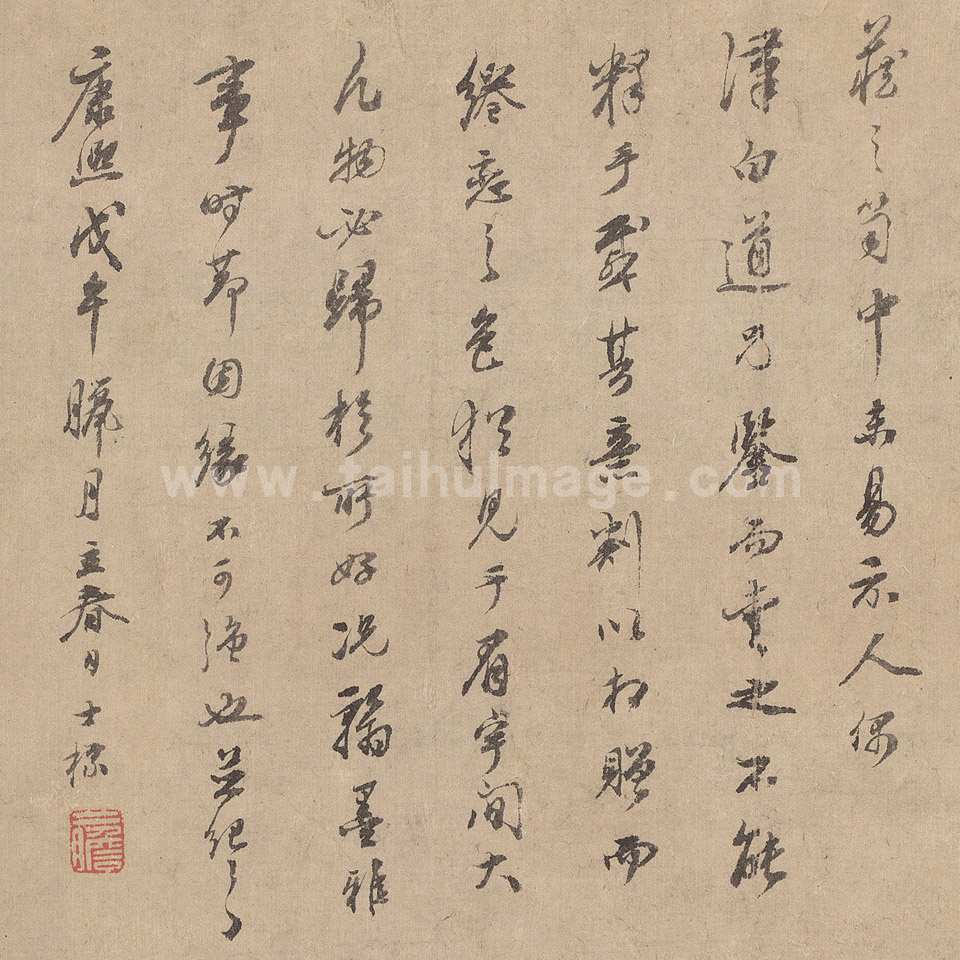 藏之笥中未易示人偶
漢白道兄鑒而之不能
釋手感其意割以相贈而
綣戀之色猶見于眉宇間大
凡物必歸於所好況翰墨雅
事時節因緣不可強也並紀之
康熙戊午臘月立春日士標
www.taihuImage.com